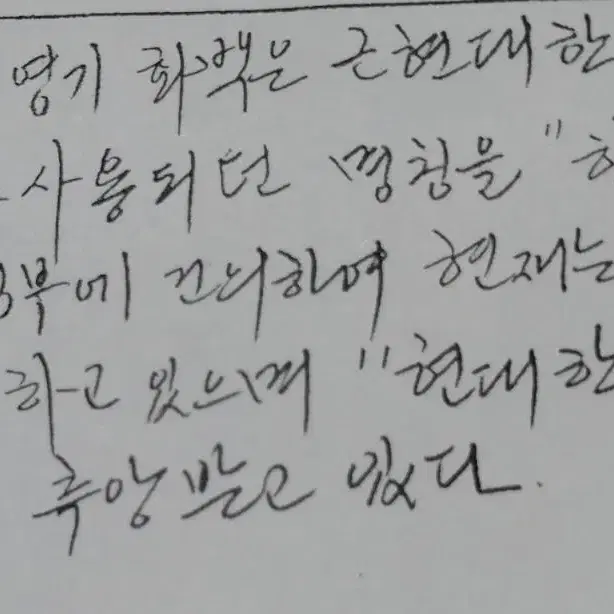 영기 화백은 근현대한
사용되던 명칭을 "한
부에 건의하여 현재는
하고 있으며 "현대한
추앙받고 있다.